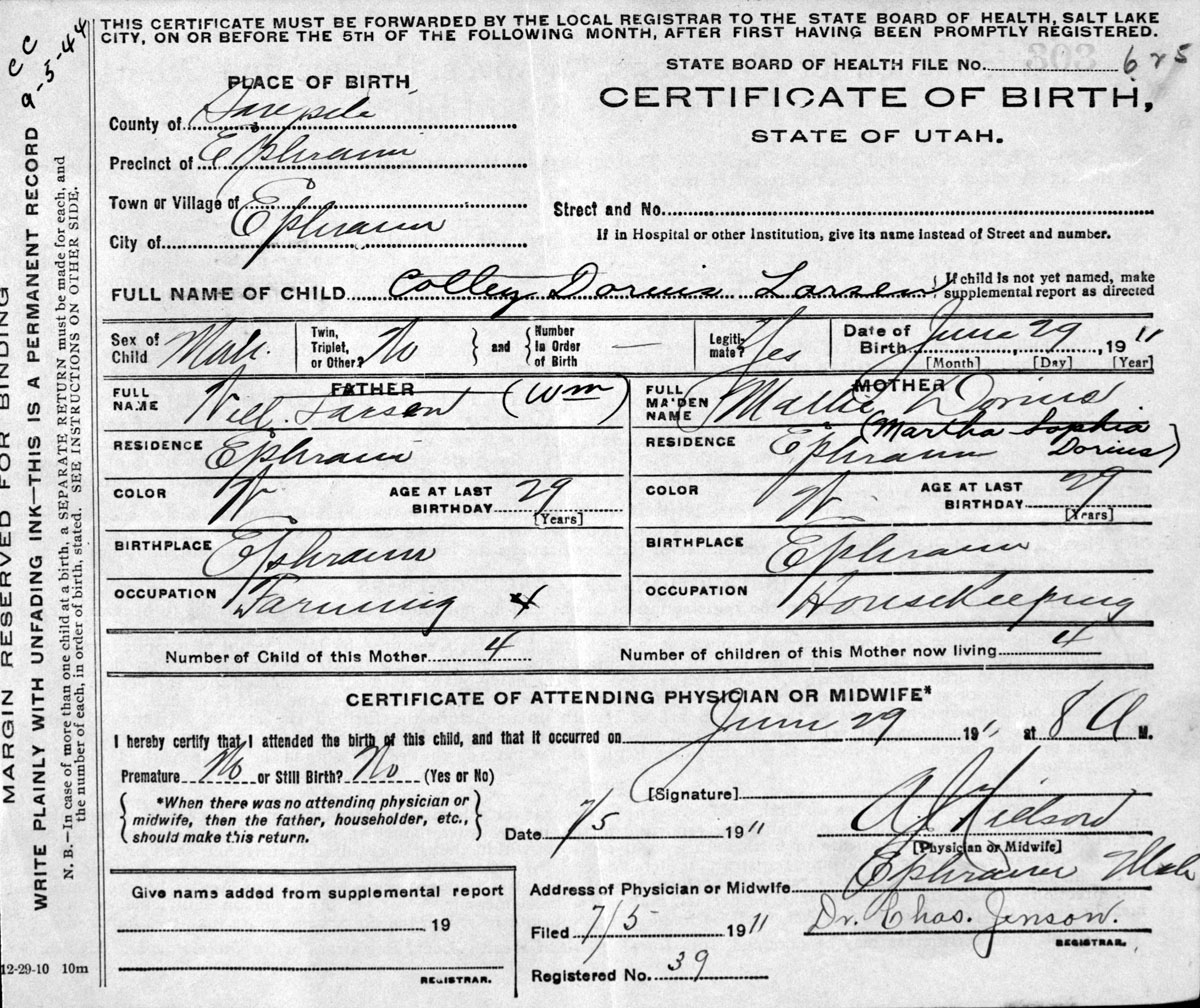 THIS CERTIFICATE MUST BE FORWARDED BY THE LOCAL REGISTRAR TO THE STATE BOARD OF HEALTH, SALT LAKE
CITY, ON OR BEFORE THE 5TH OF THE FOLLOWING MONTH, AFTER FIRST HAVING BEEN PROMPTLY REGISTERED.
STATE BOARD OF HEALTH FILE No.
CERTIFICATE OF BIRTH,
STATE OF UTAH.
PLACE OF BIRTH
County of Sanpete
Precinct of Ephraim
Town or Village of
City of Ephraim
Street and No.
If in Hospital or other Institution, give its name instead of Street and number.
FULL NAME OF CHILD Colley Dorius Larsen {If child is not yet named, make
supplemental report as directed
Sex of Child Male Twin, Triplet, or Other? No } and { Number In Order of Birth — Legiti-mate? Yes Date of Birth June 29, 1911
[Month] [Day] [Year]
FATHER
FULL NAME Will Larsen (Wm)
RESIDENCE Ephraim
COLOR W AGE AT LAST BIRTHDAY 29
[Years]
BIRTHPLACE Ephraim
OCCUPATION Farming 4
MOTHER
FULL MAIDEN NAME Dorius
(Martha Sophia
RESIDENCE Ephraim Dorius)
COLOR W AGE AT LAST BIRTHDAY 29
[Years]
BIRTHPLACE Ephraim
OCCUPATION HouseKeeping
Number of Child of this Mother 4 Number of children of this Mother now living 4
CERTIFICATE OF ATTENDING PHYSICIAN OR MIDWIFE*
I hereby certify that I attended the birth of this child, and that it occurred on June 29 1911 at 8 A M.
Premature No or Still Birth? No (Yes or No)
*When there was no attending physician or
midwife, then the father, householder, etc.,
should make this return.
[Signature]
Date 7/5 1911
[Physician or Midwife]
Address of Physician or Midwife Ephraim Utah
Filed 7/5 1911 Dr. Chas. Jenson.
REGISTRAR.
Registered No. 39
Give name added from supplemental report
19
REGISTRAR.
12-29-10 10m
MARGIN RESERVED FOR BINDING
WRITE PLAINLY WITH UNFADING INK—THIS IS A PERMANENT RECORD
N. B.—In case of more than one child at a birth, a SEPARATE RETURN must be made for each, and
the number of each, in order of birth, stated. SEE INSTRUCTIONS ON OTHER SIDE.